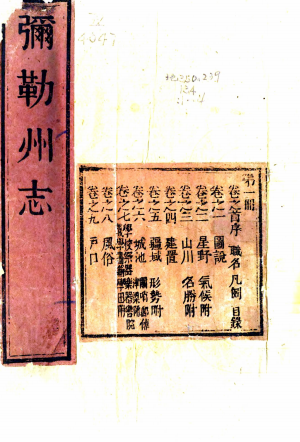 彌勒州志
地250.279
134
第一冊
卷之首序 職名 凡例 目錄
卷之一 圖說
卷之二 星野 氣候附
卷之三 山川 名勝附
卷之四 建置
卷之五 疆域 形勢附
卷之六 城池
卷之七
卷之八 風俗
卷之九 戶口